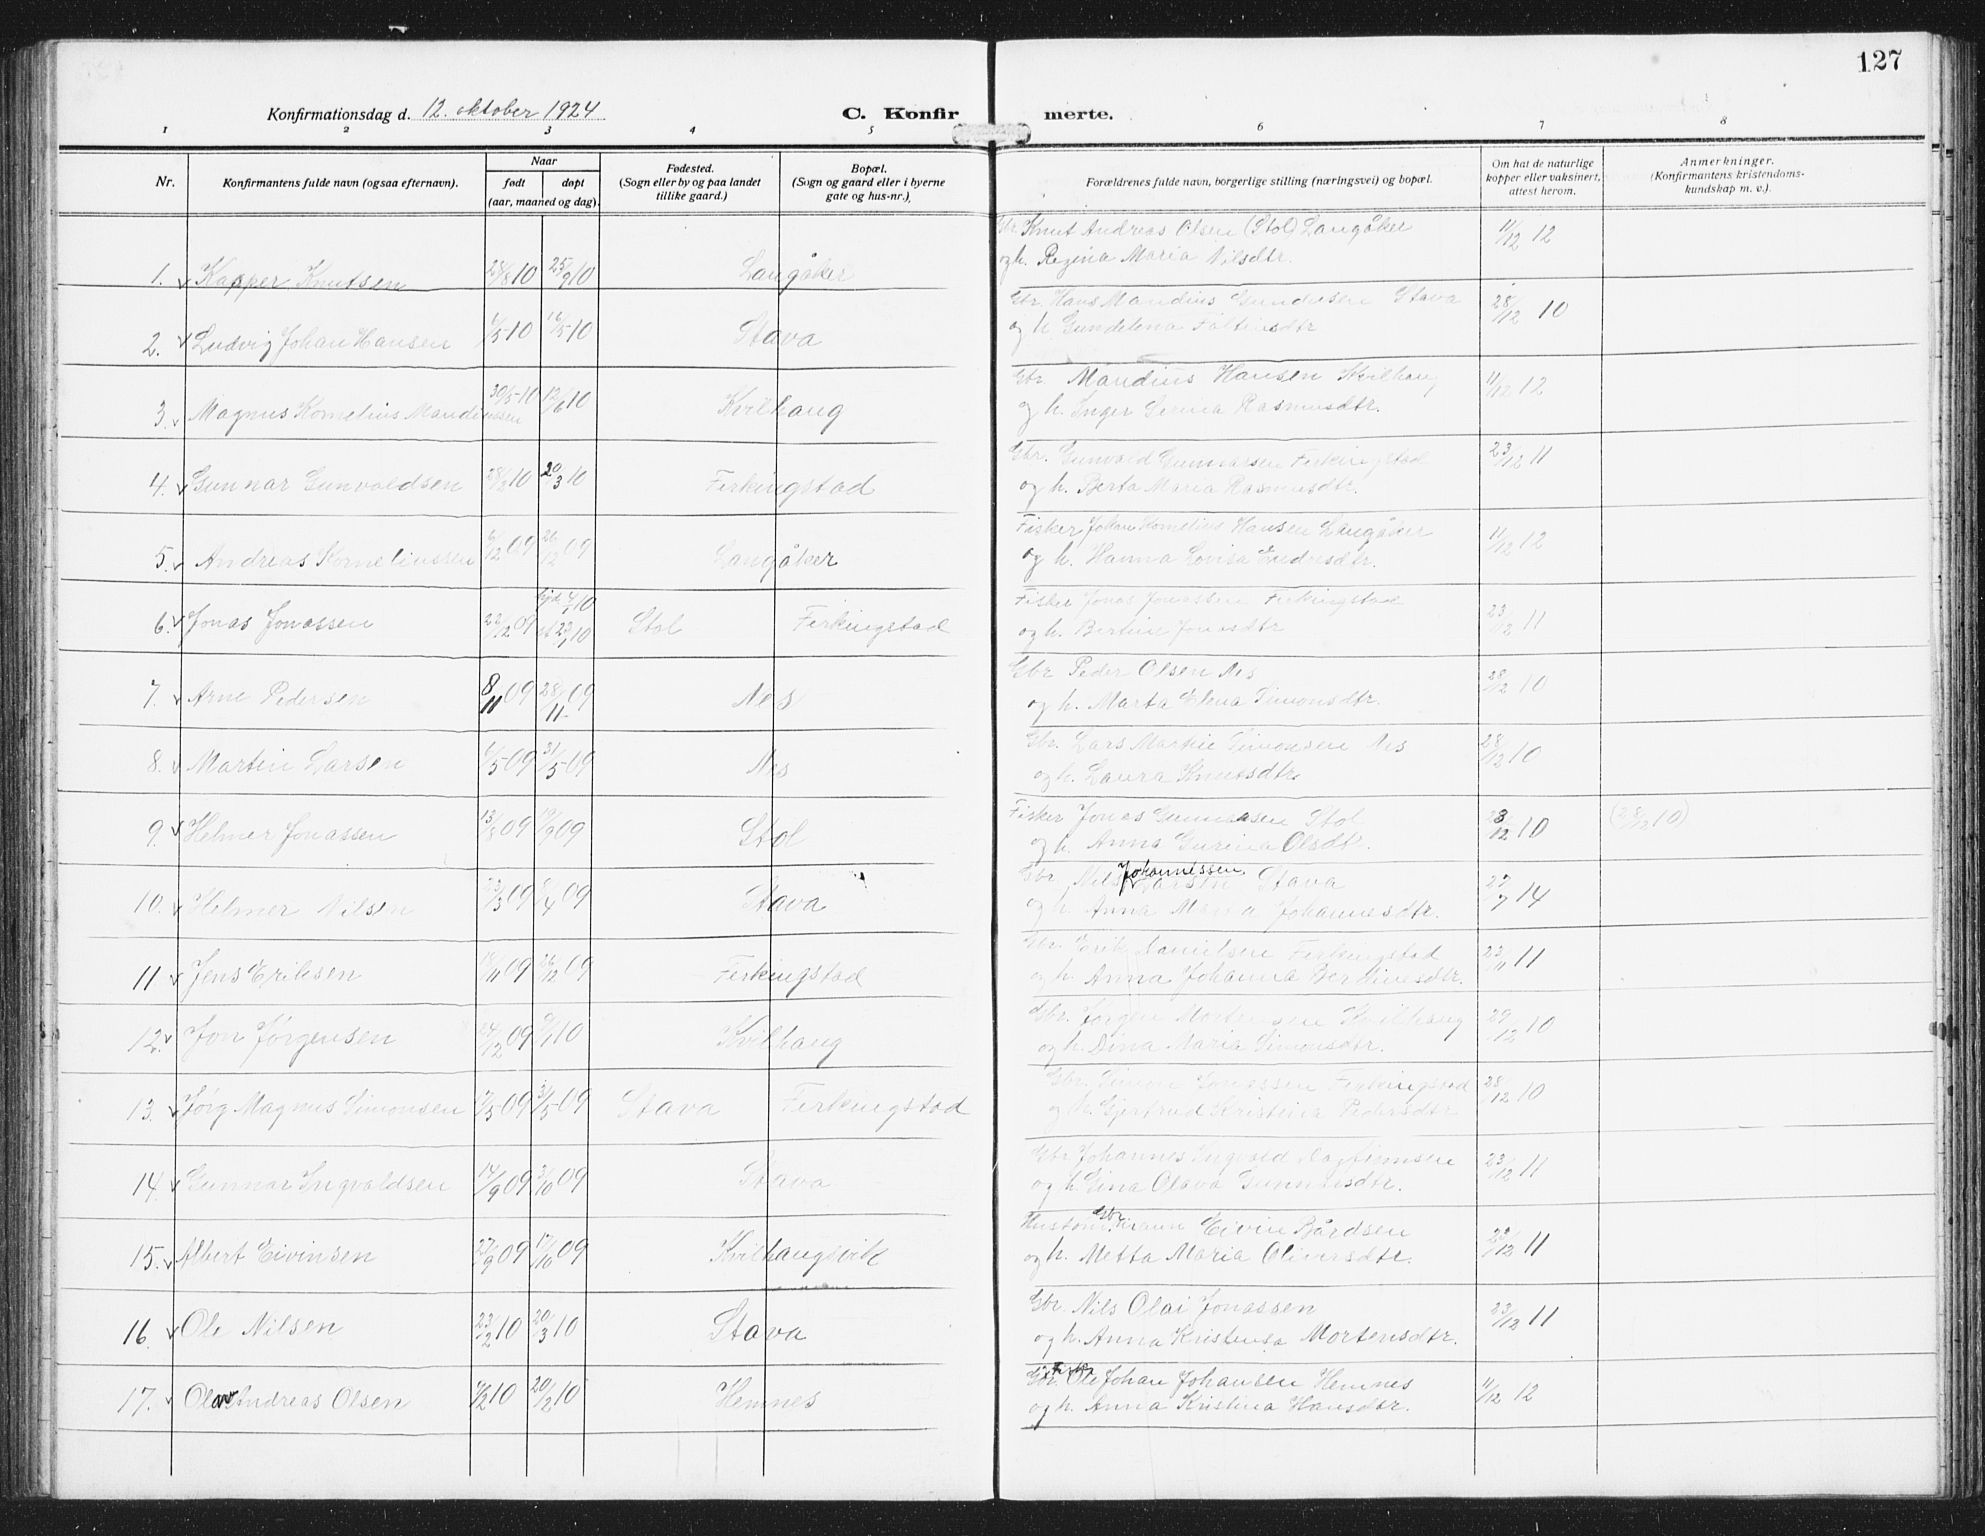 127
Konfirmationsdag d. 12. oktober 1924
C. Konfirmerte.
1 2 3 4 5 6 7 8
Nr.
Konfirmantens fulde navn (ogsaa efternavn).
Naar
født døpt
(aar, maaned og dag).
Fødested.
(Sogn eller by og paa landet
tillike gaard.)
Bopæl.
(Sogn og gaard eller i byerne
gate og hus-nr.),
Forældrenes fulde navn, borgerlige stilling (næringsvei) og bopæl.
Om hat de naturlige
kopper eller vaksinert,
attest herom.
Anmerkninger.
(Konfirmantens kristendoms-
kundskap m. v.).
Gbr. Knut Andreas Olsen (Stol) Langåker 11/12 12
og h. Regina Maria Nilsdtr.
1. Kasper Knutsen 28/8 10 25/9 10 Langåker
Gbr. Hans Mandius Gundersen Stava 28/12 10
og h. Gundelena Faltinsdtr
2. Ludvig Johan Hansen 1/5 10 16/5 10 Stava
Gbr. Mandius Hansen Kvilhaug 11/12 12
og h. Inger Serina Rasmusdtr.
3. Magnus Kornelius Mandiussen 30/5-10 12/6 10 Kvilhaug
Gbr. Gunvald Gunnarsen Ferkingstad 23/12 11
og h. Berta Maria Rasmusdtr.
4. Gunnar Gunvaldsen 28/2 10 20/3 10 Ferkingstad
Fisker Johan Kornelius Hansen Langåker 11/12 12
og h. Hanna Lovisa Endresdtr.
5. Andreas Korneliussen 6/12 09 26/12 09 Langåker
Fisker Jonas Jonassen Ferkingstad 23/12 11
og h. Bertine Jonasdtr
6. Jonas Jonassen 22/12 09 Hjd. 4/1 10 Stol Ferkingstad
st 23/1 10
Gbr Peder Olsen Nes 28/12 10
og h. Marta Elena Simonsdtr.
7. Arne Pedersen 8/11 09 28/11 09 Nes
Gbr. Lars Martin Simonsen Nes 28/12 10
og h. Laura Knutsdtr.
8. Martin Larsen 6/5 09 31/5 09 Nes
Fisker Jonas Gunnarsen Stol 28/12 10 (28/12 10)
og h. Anna Gurina Olsdtr.
9. Helmer Jonassen 13/8 09 19/9 09 Stol
Johannessen
Gbr. Nils Larsen Stava 27/7 14
og h. Anna Marta Johannesdtr.
10. Helmer Nilsen 23/3 09 9/4 09 Stava
Gbr. Erik Danielsen Ferkingstad 23/11 11
og h. Anna Johanna Berdinesdtr.
11 Jens Eriksen 18/11 09 26/12 09 Ferkingstad
Gbr. Jørgen Mortensen Kvilhaug 29/12 10
og h. Dina Maria Simonsdtr.
12. Jon Jørgensen 24/12 09 9/1 10 Kvilhaug
Gbr. Simon Jonassen Ferkingstad 28/12 10
og h. Gjertrud Kristina Pedersdtr
13. Jørg Magnus Simonsen 9/5 09 31/5 09 Stava Ferkingstad
Gbr. Johannes Ingvald Dagfinnsen 23/12 11
og h. Gina Olava Gunnarsdtr.
14. Gunnar Ingvaldsen 14/9 09 3/10 09 Stava
Gbr.
Hustom. mann Eivin Bårdsen 23/12 11
og h. Metta Maria Oliversdtr.
15. Albert Eivinsen 27/9 09 17/10 09 Kvilhaugsvik
Gbr. Nils Olai Jonassen 23/12 11
og h. Anna Kristensa Mortensdtr.
16. Ole Nilsen 23/2 10 20/3 10 Stava
Gbr. Ole Johan Johansen Hemnes 11/12 12
og h. Anna Kristina Hansdtr.
17. Olav Andreas Olsen 9/2 10 20/2 10 Hemnes